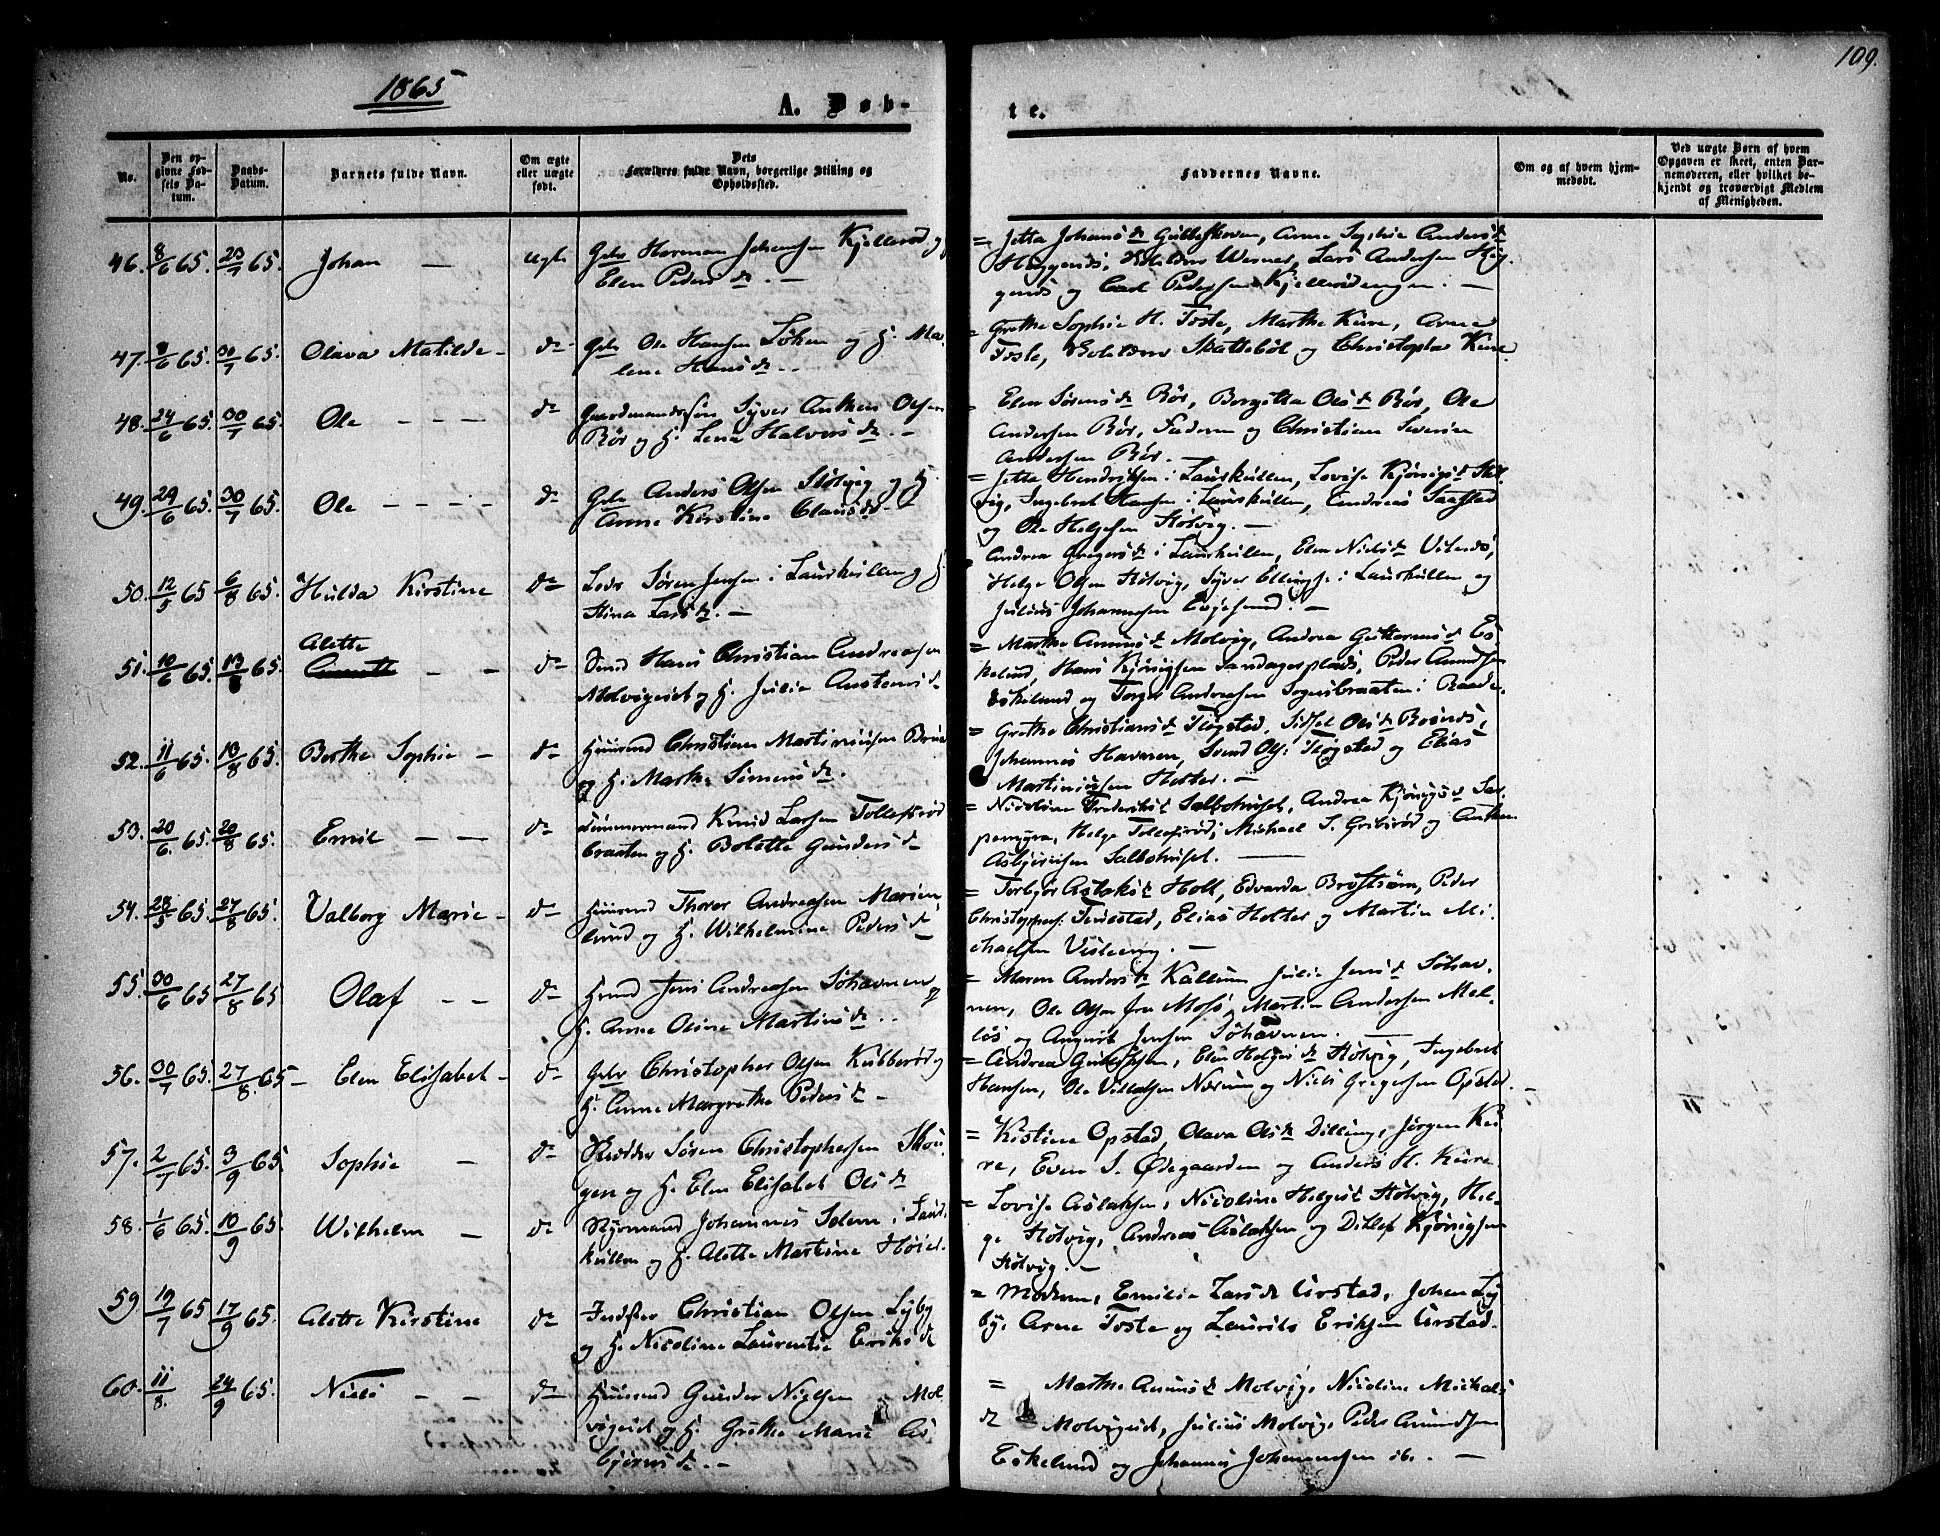 109.
1865
A. Døb-
te.
No.
Den op-
givne Fød-
sels Da-
tum.
Daabs-
Datum.
Barnets fulde Navn.
Om ægte
eller uægte
født.
Dets
Forældres fulde Navn, borgerlige Stilling og
Opholdssted.
Faddernes Navne.
Om og af hvem hjem-
medøbt.
Ved uægte Børn af hvem
Opgaven er skeet, enten Bar-
nemoderen, eller hvilket be-
kjendt og troværdigt Medlem
af Menigheden.
46. 8/6 65. 20/7 65. Johan — Ægte Gbr Herman Johansen Kjellerød og
Elen Peders dr. —
= Jetta Johans dr Gulleskoven, Anne Sophie Anders dr
Wernes, Lars Andersen
og Carl Pedersen Kjellerødengen. —
47. 8/6 65. 30/7 65. Olava Matilde — do Gbr Ole Hansen og H. Ma-
lene Hans dr. —
= Grethe Sophie H. Foste, Marthe Kure, Anne
Foste, Skattebøl og Christopher Kure
48. 24/6 65. 30/7 65. Ole — — — do Gaardmandssøn Syver Anthon Olsen
Rør og H. Lena Halvors dr. —
= Elen Sørens dr Rør, Bergitta Ols dr Rør, Ole
Andersen Rør, Faderen og Christian Severin
Andersen Rør. —
49. 29/6 65. 30/7 65. Ole — — — — do Gbr Anders Olsen Støtvig og H.
Anne Kirstine Claus dr —
= Jetta Hendriksen i Laurkullen, Lovise Kjønigs dr Støt-
vig, Ingebret Hansen i Laurkullen, Andreas Saastad
og Ole Helgesen Støtvig. —
50. 12/5 65 6/8 65. Hulda Kirstine do Lods Søren Jensen i Laurkullen og H.
Stina Lars dr. —
Andrea Gregers dr i Laurkullen, Elen Niels dr
Helge Olsen Støtvig, Syver Ellingse i Laurkullen og
Julius Johannesen Evjesund. —
51. 10/6 65. 13/8 65. Alette — — do Hans Christian Andreasen
Molvigeiet og H. Julie Austens dr
= Marthe Amunds dr Molvig, Andrea Guttorms dr Es-
kelund, Hans Kjønigsen Sandagerplads, Peder Amundsen
Eskelund og Torger Andreasen Sognsbraaten i Raade.
52. 11/6 65. 13/8 65. Berthe Sophie — do Huusmd Christian Martiniusen
og H. Marthe Simens dr.
= Grethe Christians dr Fløgstad, Sidsel Ols dr
Johannes Havnen, Svend Ols: Fløgstad og Elias
Martiniusen Holter. —
53. 20/6. 65. 20/8 65. Emil — — do Tømmermand Knud Larsen Tollefsrød-
braaten og H. Bolette Gunders dr
= Nicoline Frederiks dr Salbohuset, Andrea Kjønigs dr
Helge Tollefsrød, Michael S. Gribsrød og Anthon
Asbjørnsen Salbohuset. —
54. 28/5 65. 27/8 65. Valborg Marie — do Huusmd Thorer Andreasen Marien-
lund og H. Wilhelmine Peders dr
= Torbjør Aslaks dr Holt, Edvarda Brostrøm, Peder
Christophers: Tendstad, Elias Holter og Martin Mi-
chaelsen Visleering. —
55. 30/6 65 27/8 65 Olaf — — do Jens Andreasen Søhavnen og
H. Anne Oline Martins dr. —
= Maren Anders dr Kallum Julie Jens dr Søhav-
nen, Ole Olsen fra Moss, Martin Andersen Mel-
løs og August Jensen Søhavnen. —
56. 30/7 65. 27/8. 65 — Elen Elisabet — do Gbr Christopher Olsen Kubberød og
H. Anne Margrethe Peders dr —
= Andrea Elen Helges dr Støtvig, Ingebret
Hansen, Ole Villadsen Nærum og Niels Gregersen Opstad.
57. 2/7 65. 3/9 65. Sophie — do Søren Christophersen Skou-
gen og H. Elen Elisabet Ols dr
= Kistine Opstad, Olava Ols dr Dilling, Jørgen Ku-
re, Even S. Ødegaarden og Anders H. Kure.
58. 1/6 65. 10/9 65. Wilhelm — do Styrmand Johannes Solem i Laur-
kullen og H. Alette Martine
= Lovise Aslaksen, Nicoline Helges dr Støtvig, Hel-
ge Støtvig, Andreas Aslaksen og Ditlef Kjønigsen
Støtvig. —
59 19/7 65 17/9 65. Alette Kirstine do Indster Christian Olsen Lyby
og H. Nicoline Laurentie Eriks dr
= Moderen, Emilie Lars dr Urstad, Johan Ly-
by, Arne Foste og Laurits Eriksen Urstad.
60. 11/8. 24/9 65. Niels — — do Huusmd Gunder Nielsen Mol-
vigeiet og H. Grethe Marie As-
bjørns dr. —
= Marthe Amunds dr Molvig, Nicoline Michels
dr Molvigeiet, Julius Molvig, Peder Amundsen
Eskelund og Johannes Johannesen ib. —